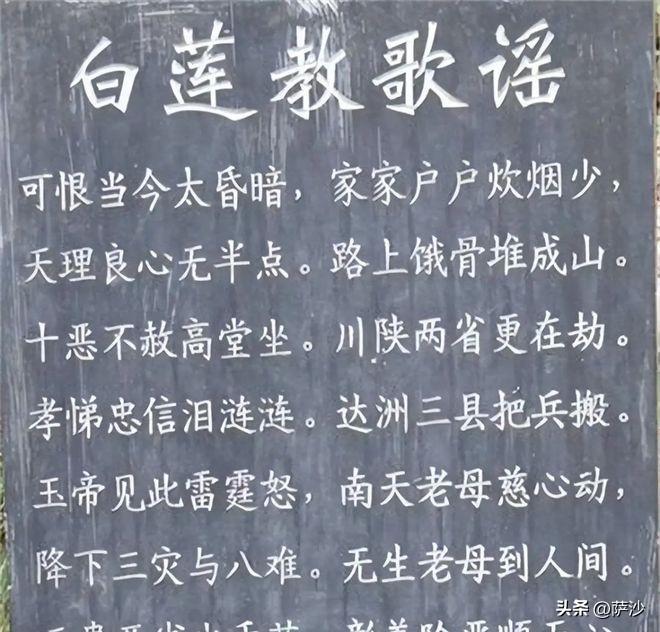 白莲教歌谣
可恨当今太昏暗，家家户户炊烟少，
天理良心无半点。路上饿骨堆成山。
十恶不赦高堂坐。川陕两省更在劫。
孝悌忠信泪涟涟。达洲三县把兵搬。
玉帝见此雷霆怒，南天老母慈心动，
降下三灾与八难。无生老母到人间。
头条 @萨沙